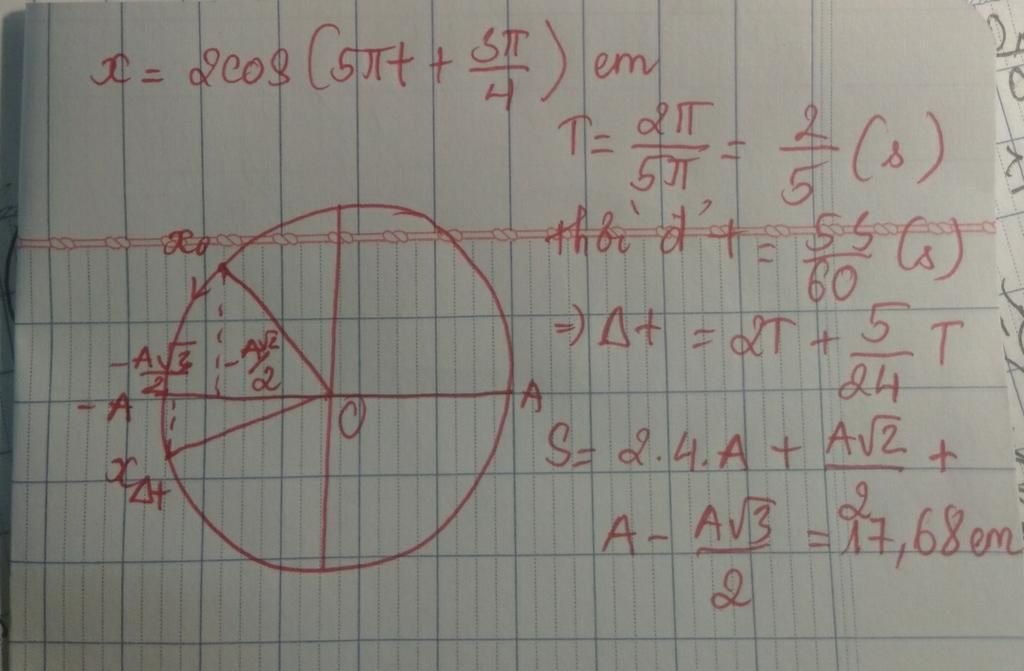 x = 2cos(5πt + 3π/4) cm
T = 2π/5π = 2/5 (s)
t = 53/60 (s)
⇒ Δt = 2T + 5/24 T
S = 2.4.A + A√2/2 +
A - A√3/2 = 17,68 cm
x₀
-A√3/2
-A√2/2
-A
O
A
x_Δt